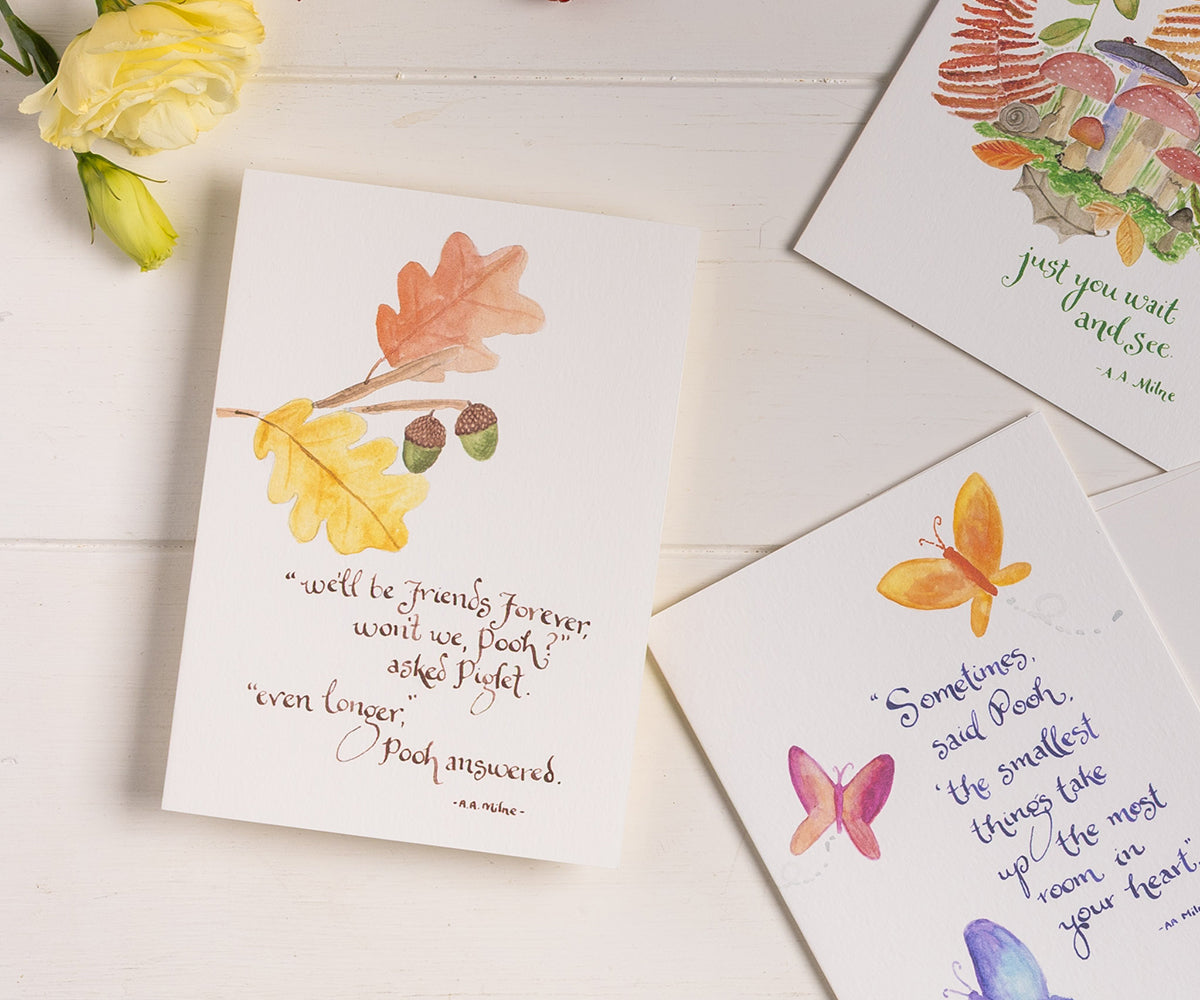 "we'll be Friends Forever,
won't we, Pooh?"
asked Piglet.
"even longer,"
Pooh answered.
-A.A. Milne-
just you wait
and see.
-A.A Milne
"Sometimes,
said Pooh,
'the smallest
things take
up the most
room in
your heart"
-AA Miln